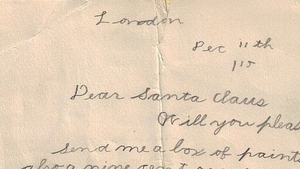 London
Dec 11th
1915
Dear Santa Claus
Will you pleas
send me a box of paints
also a nine cent